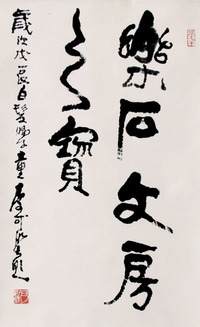 樂石文房
之寶
歲次戊寅白髮學童